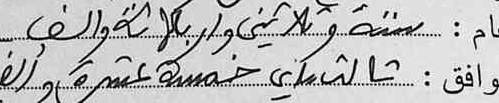 ام : ستة وثلاثين واربلائة والف
وافق : ثالث ماي خمسة عشرة والف